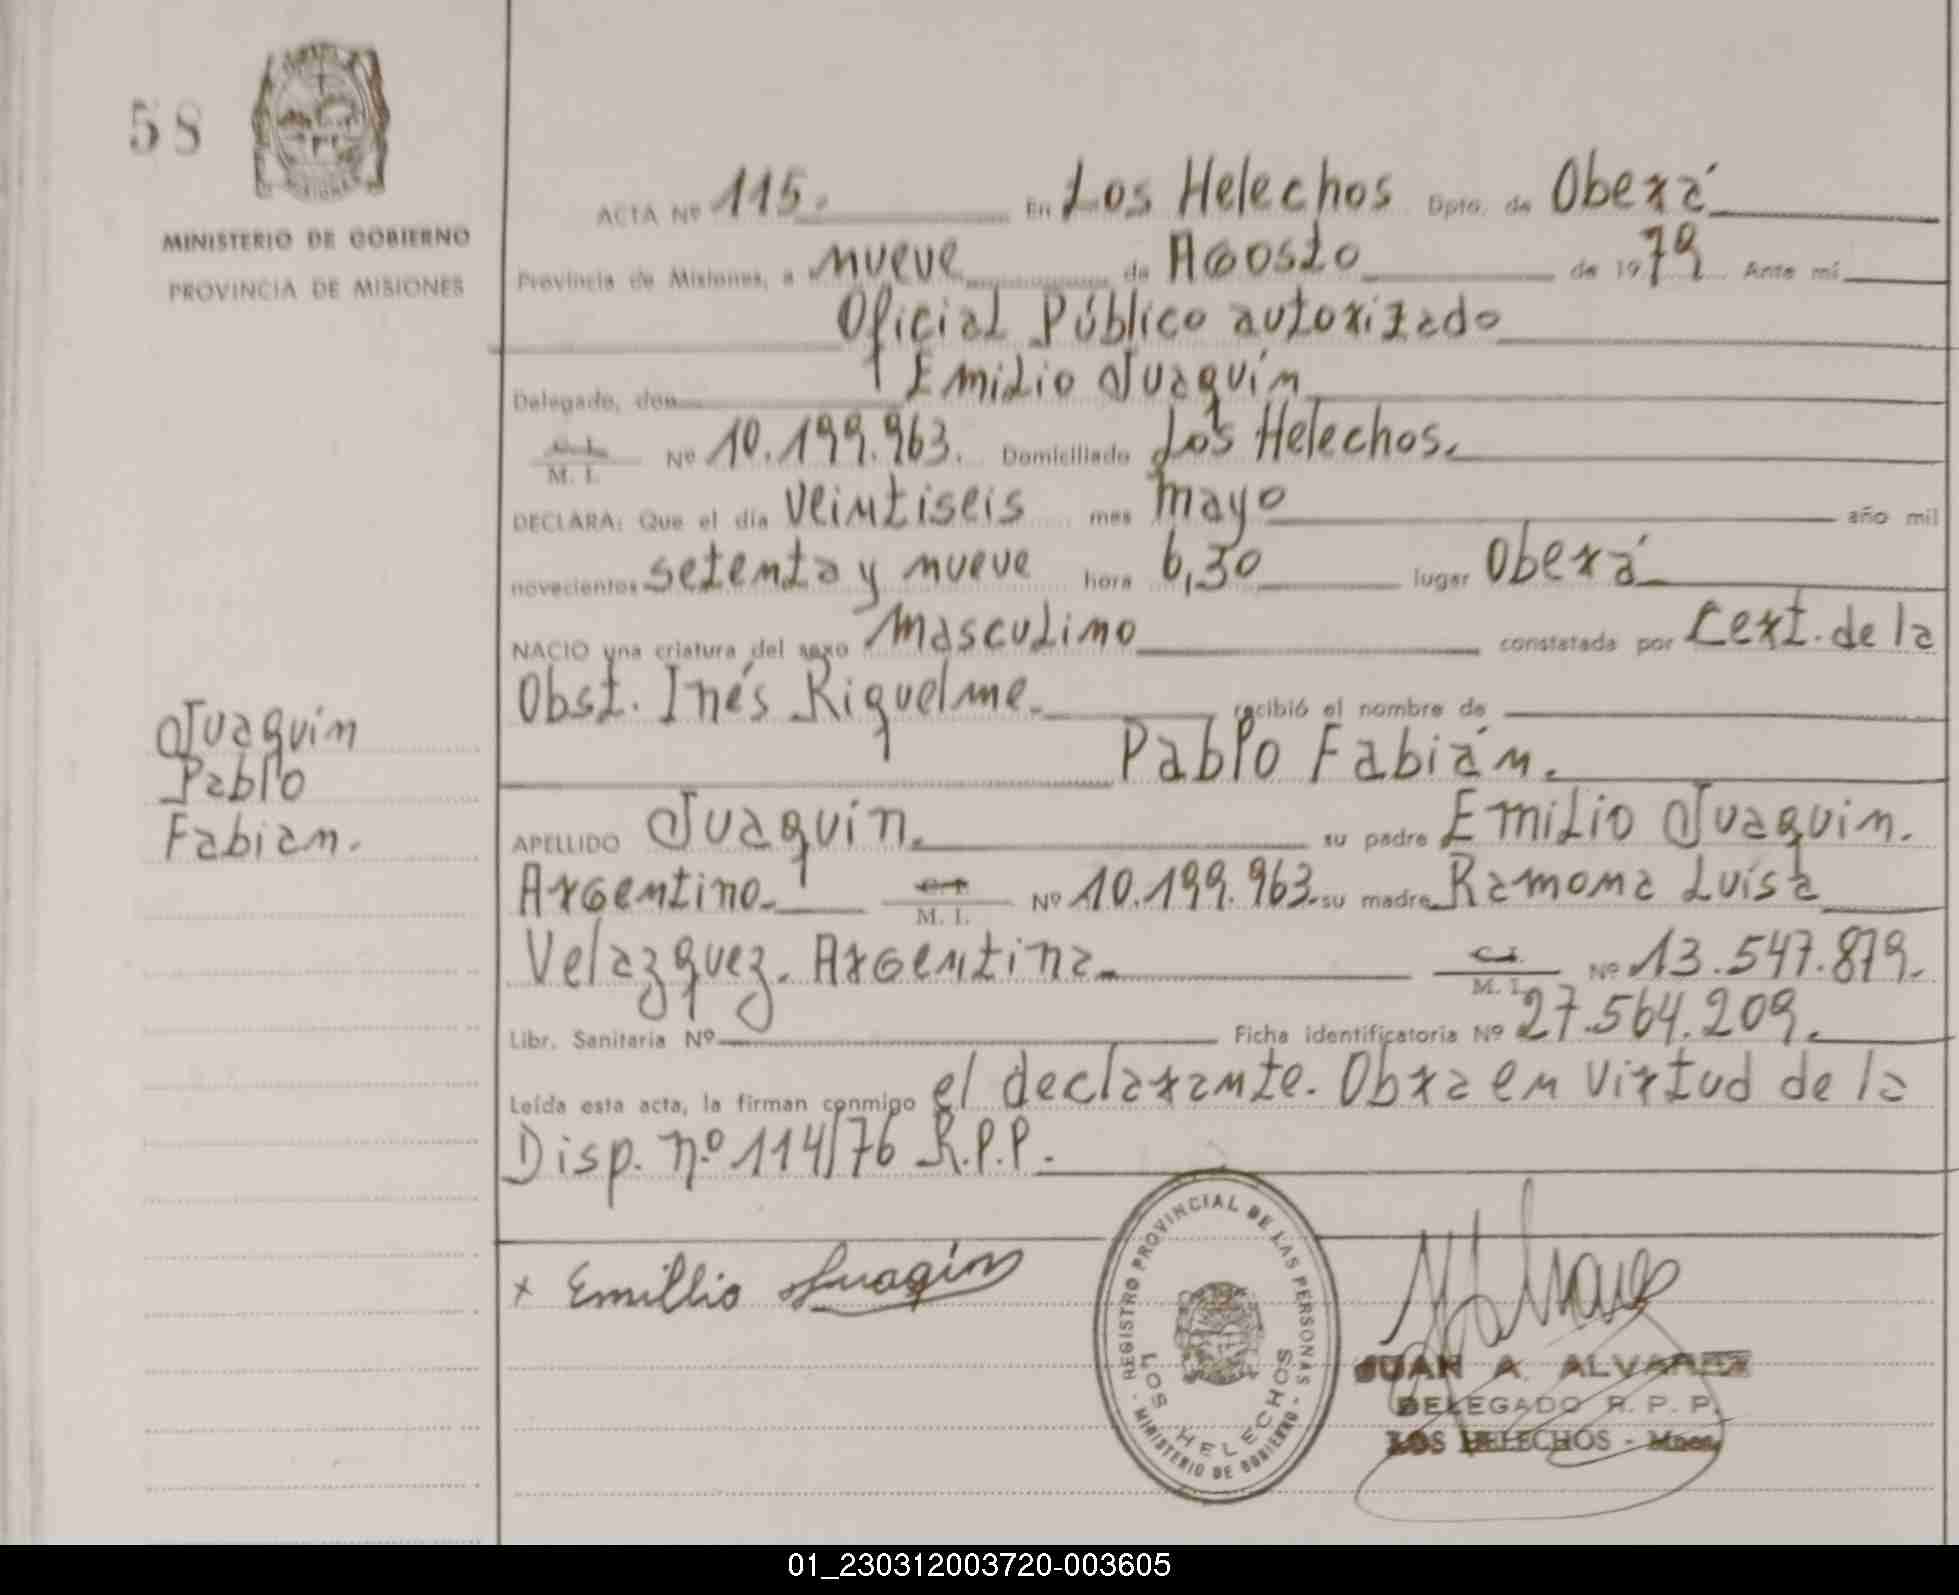 58
MINISTERIO DE GOBIERNO
PROVINCIA DE MISIONES
ACTA Nº 115. En Los Helechos Dpto. de Oberá
Provincia de Misiones, a nueve de Agosto de 1979 Ante mí
Oficial Público autorizado
Delegado, don Emilio Juaquín
C. I. M. I. Nº 10.199.963. Domiciliado Los Helechos.
DECLARA: Que el día veintiseis mes mayo año mil
novecientos setenta y nueve hora 6,30 lugar Oberá
NACIO una criatura del sexo Masculino constatada por Cert. de la
Obst. Inés Riquelme. recibió el nombre de
Pablo Fabián.
APELLIDO Juaquín. su padre Emilio Juaquin.
Argentino. C.I. M. I. Nº 10.199.963. su madre Ramona Luisa
Velazquez. Argentina. C.I. M. I. Nº 13.547.879.
Libr. Sanitaria Nº Ficha identificatoria Nº 27.564.209.
Leída esta acta, la firman conmigo el declarante. Obra en virtud de la
Disp. nº 114/76 R.P.P.
Juaquin
Pablo
Fabian.
x Emillio Juaqin
REGISTRO PROVINCIAL DE LAS PERSONAS
LOS HELECHOS
- MINISTERIO DE GOBIERNO -
JUAN A. ALVAREZ
DELEGADO R. P. P.
LOS HELECHOS - Mnes.
01_230312003720-003605